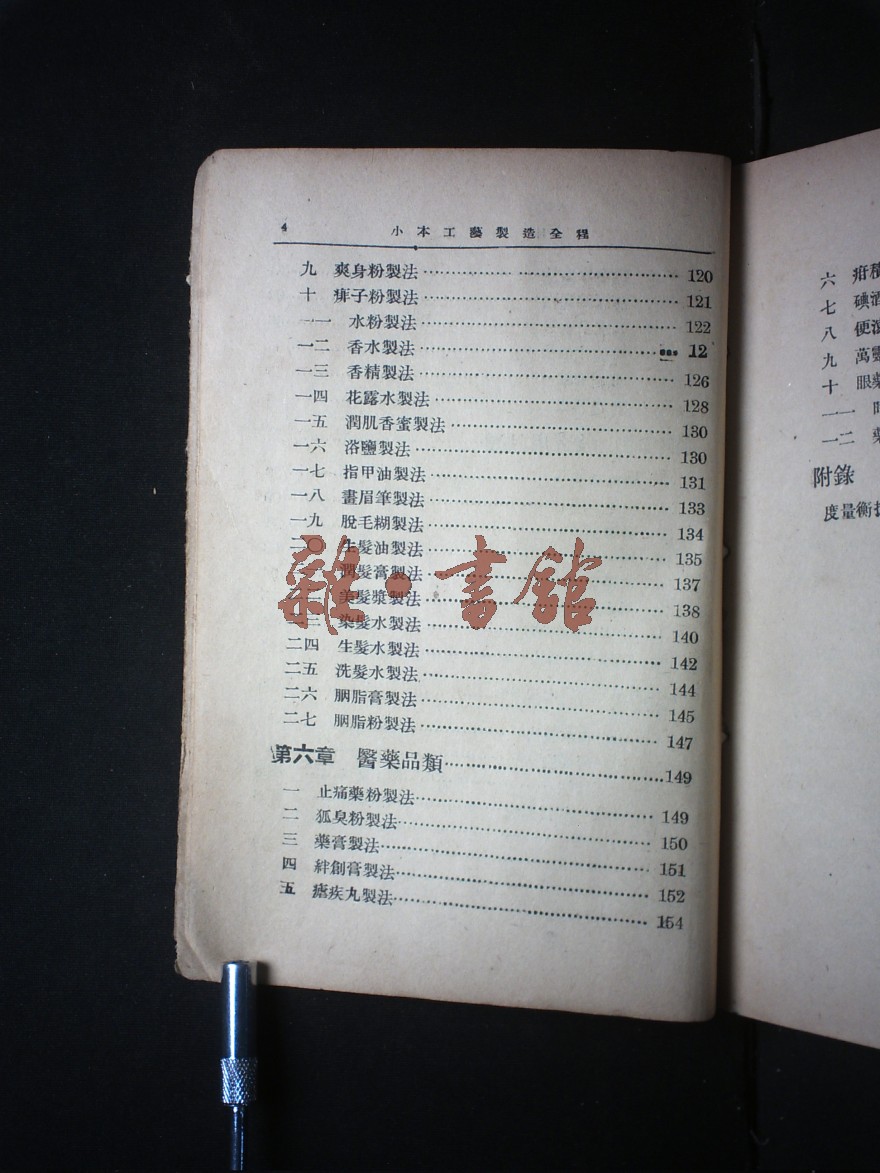 4 小本工藝製造全程
九 爽身粉製法 120
十 痱子粉製法 121
一一 水粉製法 122
一二 香水製法 12
一三 香精製法 126
一四 花露水製法 128
一五 潤肌香蜜製法 130
一六 浴鹽製法 130
一七 指甲油製法 131
一八 畫眉筆製法 133
一九 脫毛糊製法 134
二〇 生髮油製法 135
潤髮膏製法 137
美髮漿製法 138
染髮水製法 140
二四 生髮水製法 142
二五 洗髮水製法 144
二六 胭脂膏製法 145
二七 胭脂粉製法 147
第六章 醫藥品類 149
一 止痛藥粉製法 149
二 狐臭粉製法 150
三 藥膏製法 151
四 絆創膏製法 152
五 瘧疾丸製法 154
雜·書館
六 疳積
七 碘酒
八 便
九 萬靈
十 眼藥
一一
一二
附錄
度量衡